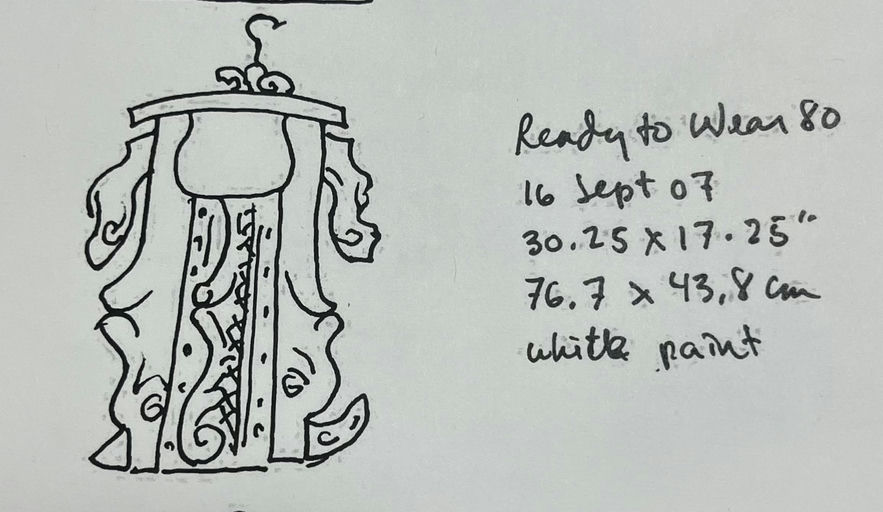 Ready to Wear 80
16 Sept 07
30.25 x 17.25"
76.7 x 43,8 cm
white paint